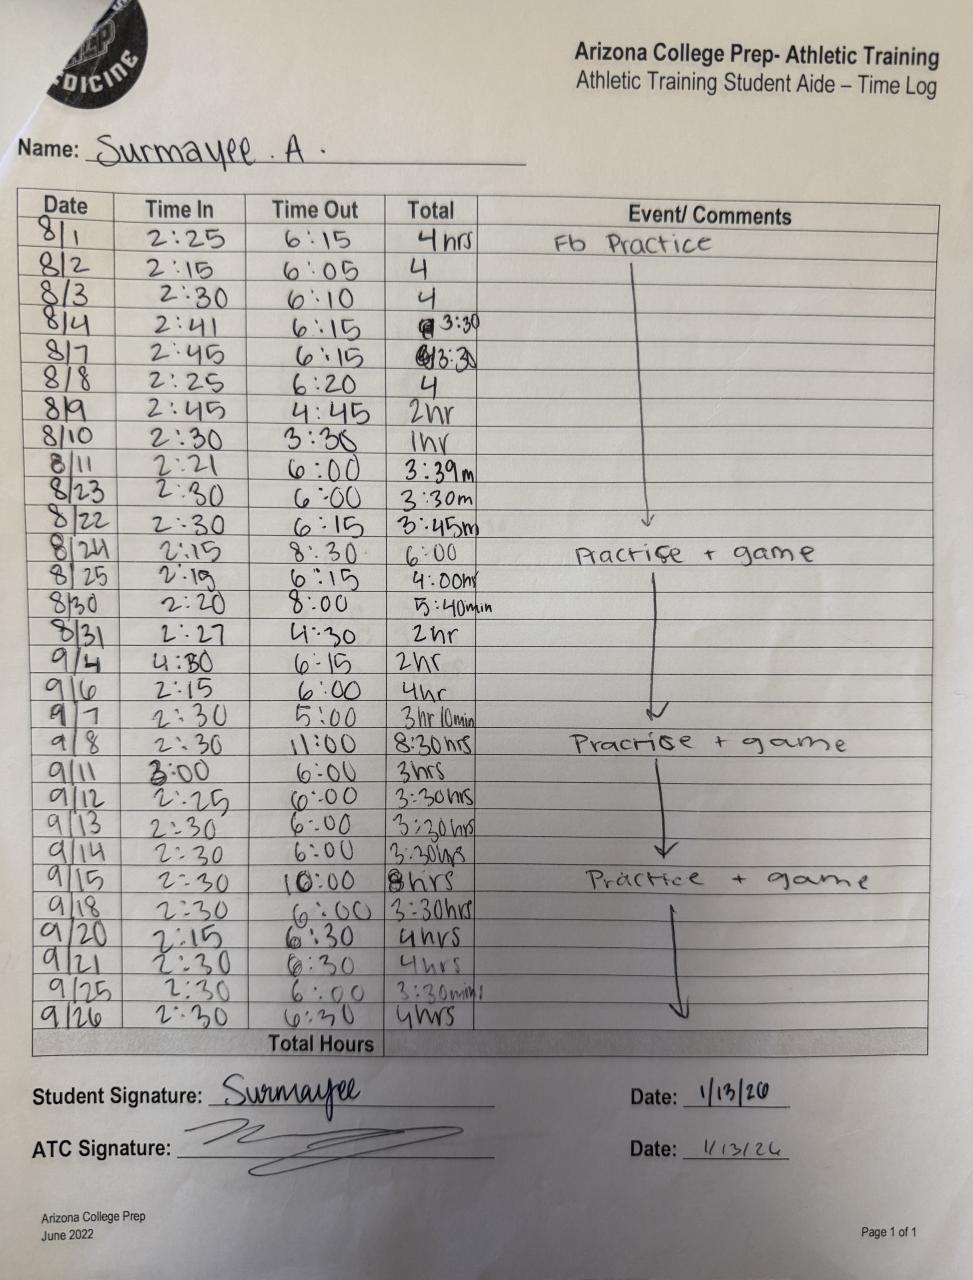 DICINE
Arizona College Prep- Athletic Training
Athletic Training Student Aide – Time Log
Name: Surmayee . A .
Date Time In Time Out Total Event/ Comments
8/1 2:25 6:15 4hrs Fb Practice
8/2 2:15 6:05 4
8/3 2:30 6:10 4
8/4 2:41 6:15 3:30
8/7 2:45 6:15 3:30
8/8 2:25 6:20 4
8/9 2:45 4:45 2hr
8/10 2:30 3:30 1hr
8/11 2:21 6:00 3:39m
8/23 2:30 6:00 3:30m
8/22 2:30 6:15 3:45m
8/24 2:15 8:30 6:00 Practise + game
8/25 2:19 6:15 4:00hr
8/30 2:20 8:00 5:40min
8/31 2:27 4:30 2hr
9/4 4:30 6:15 2hr
9/6 2:15 6:00 4hr
9/7 2:30 5:00 3hr 10min
9/8 2:30 11:00 8:30hrs Practise + game
9/11 3:00 6:00 3hrs
9/12 2:25 6:00 3:30hrs
9/13 2:30 6:00 3:30hrs
9/14 2:30 6:00 3:30hrs
9/15 2:30 10:00 8hrs Practice + game
9/18 2:30 6:00 3:30hrs
9/20 2:15 6:30 4hrs
9/21 2:30 6:30 4hrs
9/25 2:30 6:00 3:30mins
9/26 2:30 6:30 4hrs
Total Hours
Student Signature: Surmayee Date: 1/13/26
ATC Signature: Date: 1/13/26
Arizona College Prep
June 2022 Page 1 of 1